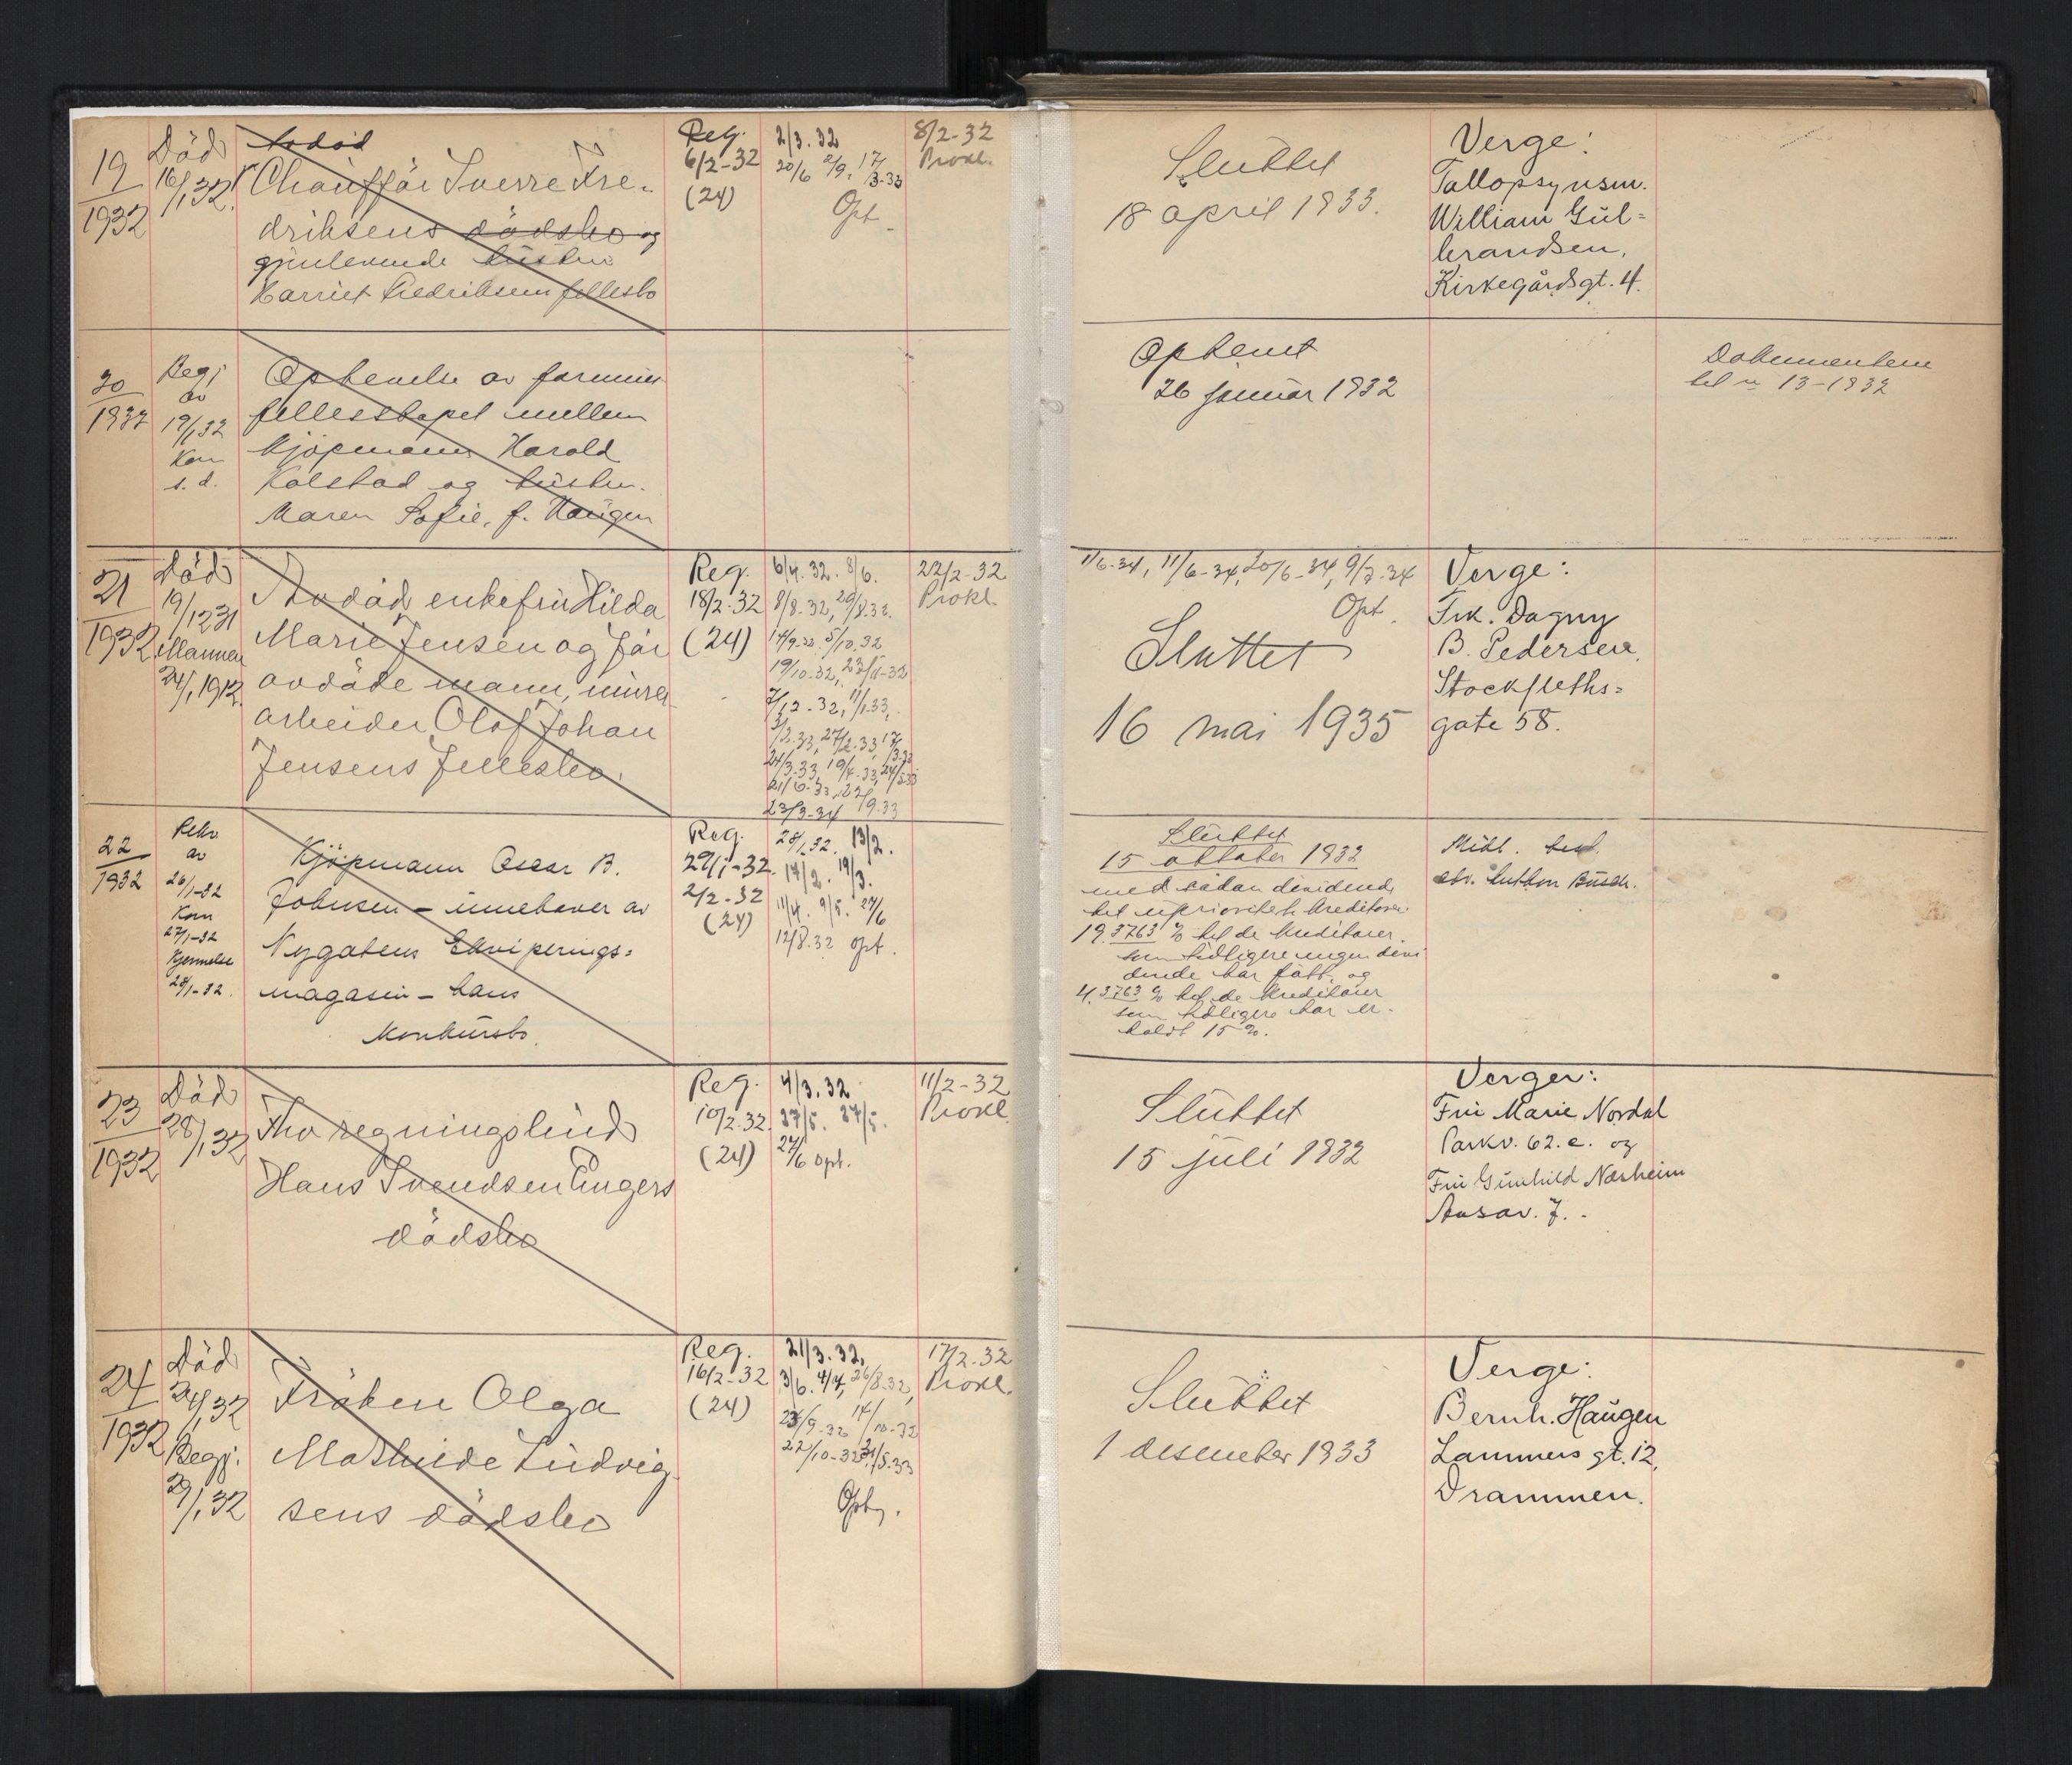 19
1932
Död
16/1 32.
Avdöd
Chaufför Sverre Fre-
driksens dödsbo og
gjenlevende hustru
Harriet Fredriksens fellesbo
Reg.
6/2-32
(24)
2/3.32
20/6 2/9, 17/3-33
Opt.
8/2-32
Prokl.
Sluttet
18 april 1933.
Verge:
Tallopsynsm.
William Gul-
brandsen,
Kirkegårdsgt. 4.
20
1932
Begj
av
19/1 32
Kom
s. d.
Ophevelse av formues
fellesskapet mellem
Kjöpmann Harald
Kolstad og hustru
Maren Sofie, f. Haugen
Ophevet
26 januar 1932
Dokumentene
til nr 13-1932
21
1932
Död
19/12 31
Mannen
24/1 1912.
Avdöd enkefru Hilda
Marie Jensen og för
avdöde mann, murer
arbeider Olof Johan
Jensens fellesbo.
Reg.
18/2-32
(24)
6/4.32. 8/6.
8/8-32, 29/8.32.
14/9-32, 5/10.32
19/10-32, 23/11-32
7/12-32, 11/1.33,
27/2.33, 17/3.33
24/3.33, 19/4-33, 24/5.33
21/6-33, 22/9.33
23/3-34
22/2-32
Prokl.
1/6-34, 11/6-34, 20/6-34, 9/7-34
Opt.
Sluttet
16 mai 1935
Verge:
Frk. Dagny
B. Pedersen,
Stockfleths-
gate 58.
22
1932
Rekv
av
26/1-32
Kom
27/1-32
Kjennelse
28/1-32.
Kjöpmann Oscar B.
Johnsen - innehaver av
Nygatens Ekviperings-
magasin - hans
konkursbo.
Reg.
29/1-32
2/2-32
(24)
28/1.32. 13/2.
17/2. 19/3.
11/4. 9/5. 27/6
12/8.32 opt.
Sluttet
15 oktober 1932
med sådan dividende
til uprioritert kreditorer
19.3763 % til de kreditorer
som tidligere ingen divi
dende har fått og
4.3763 % til de kreditorer
som tidligere har er-
holdt 15 %.
Midl. best.
adv. Anthon Busch.
23
1932
Död
28/1 32
Fhv regningsbud
Hans Svendsen Engers
dödsbo
Reg.
10/2.32.
(24)
4/3.32
27/5. 27/5.
24/6 opt.
11/2-32
Prokl
Sluttet
15 juli 1932
Verger:
Fru Marie Nordal
Parkv. 62. c. og
Fru Gunhild Næsheim
Aasav. 7.
24
1932
Död
24/1 32
Begj.
29/1 32
Fröken Olga
Mathilde Ludvig-
sens dödsbo
Reg.
16/2-32
(24)
21/3.32,
3/6. 4/4, 26/8.32,
23/9-32 14/10-32
22/10-32 31/5.33
Opt.
17/2.32
Prokl.
Sluttet
1 desember 1933
Verge:
Bernh. Haugen
Lammers gt. 12,
Drammen.